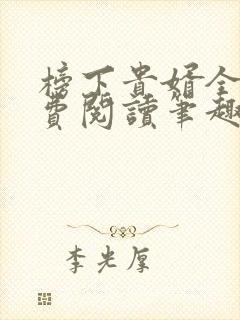 榜下貴婿全
費閱讀筆趣
李光厚